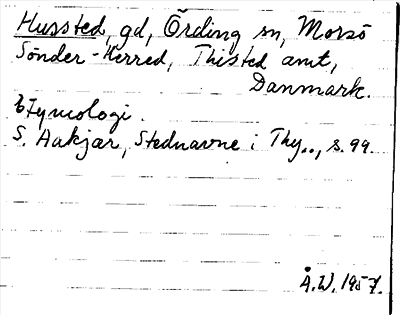 Hussted, gd, Ørding sn, Morsö
Sönder-Herred, Thisted amt,
Danmark.
Etymologi.
S. Aakjær, Stednavne i Thy.., s. 99.
Å.W. 1957.